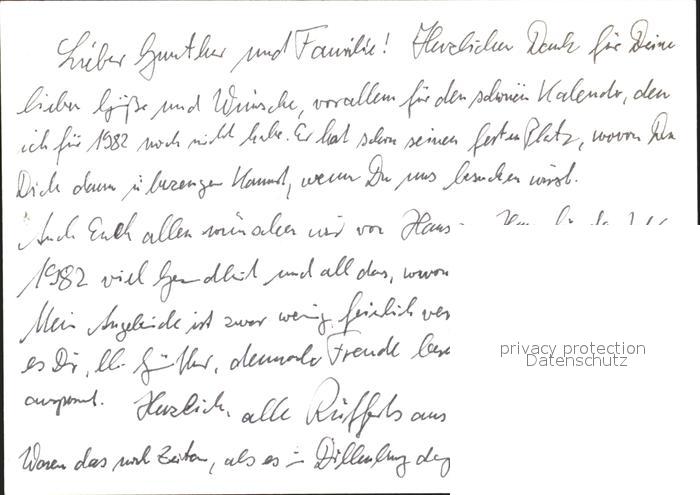 Lieber Gunther und Familie! Herzlichen Dank für Deine
lieben Grüße und Wünsche, vor allem für den schönen Kalender, den
ich für 1982 noch nicht habe. Er hat schon seinen festen Platz, wovon Du
Dich dann überzeugen kannst, wenn Du uns besuchen wirst.
Auch Euch allen wünschen wir von Haus
1982 viel Gesundheit und all das, wovon
Mein Angebinde ist zwar wenig feierlich
es Dir, lb. Günther, dennoch Freude
Herzlich, alle Rüfferts aus
Waren das noch Zeiten, als es in Dillenburg
privacy protection
Datenschutz